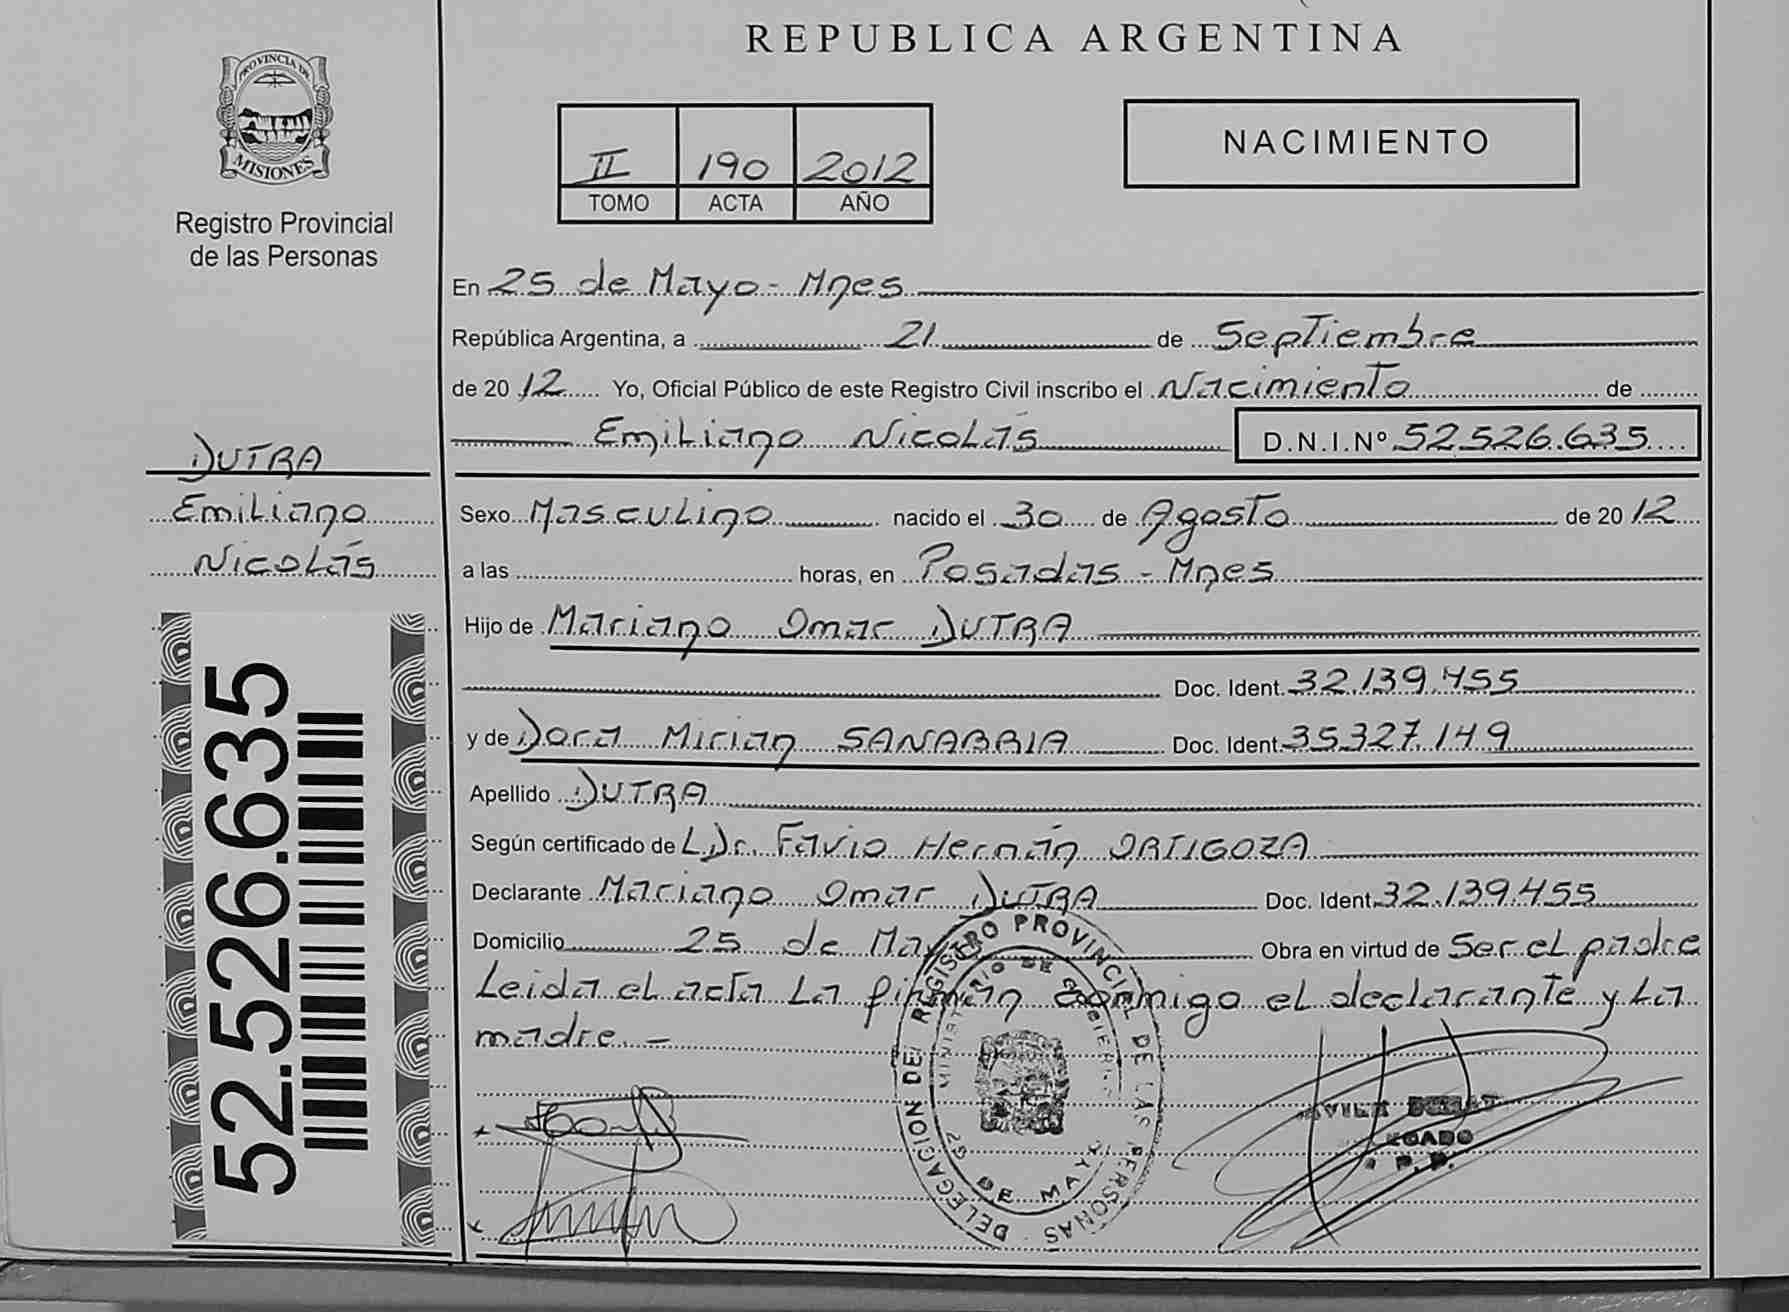 REPUBLICA ARGENTINA
PROVINCIA DE
MISIONES
Registro Provincial
de las Personas
II 190 2012
TOMO ACTA AÑO
NACIMIENTO
En 25 de Mayo - Mnes
República Argentina, a 21 de Septiembre
de 2012 Yo, Oficial Público de este Registro Civil inscribo el Nacimiento de
Emiliano Nicolás D.N.I.Nº 52.526.635
DUTRA
Emiliano
Nicolás
Sexo Masculino nacido el 30 de Agosto de 2012
a las horas, en Posadas - Mnes
Hijo de Mariano Omar DUTRA
Doc. Ident. 32.139.455
y de Dora Mirian SANABRIA Doc. Ident. 35327.149
Apellido DUTRA
Según certificado de L.Dr. Favio Hernán ORTIGOZA
Declarante Mariano Omar DUTRA Doc. Ident. 32.139.455
Domicilio 25 de Mayo Obra en virtud de Ser el padre
Leida el acta La firman conmigo el declarante y La
madre. -
52.526.635
DELEGACION DEL REGISTRO PROVINCIAL DE LAS PERSONAS
MINISTERIO DE GOBIERNO
25 DE MAYO